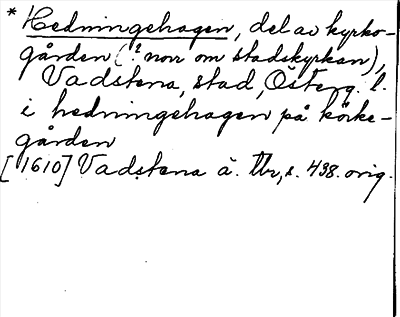 * Hedningehagen, del av kyrko-
gården (? norr om stadskyrkan),
Vadstena, stad, Österg. l.
i hedningehagen på körke-
gården
[1610] Vadstena ä. Tbr, s. 438. orig.